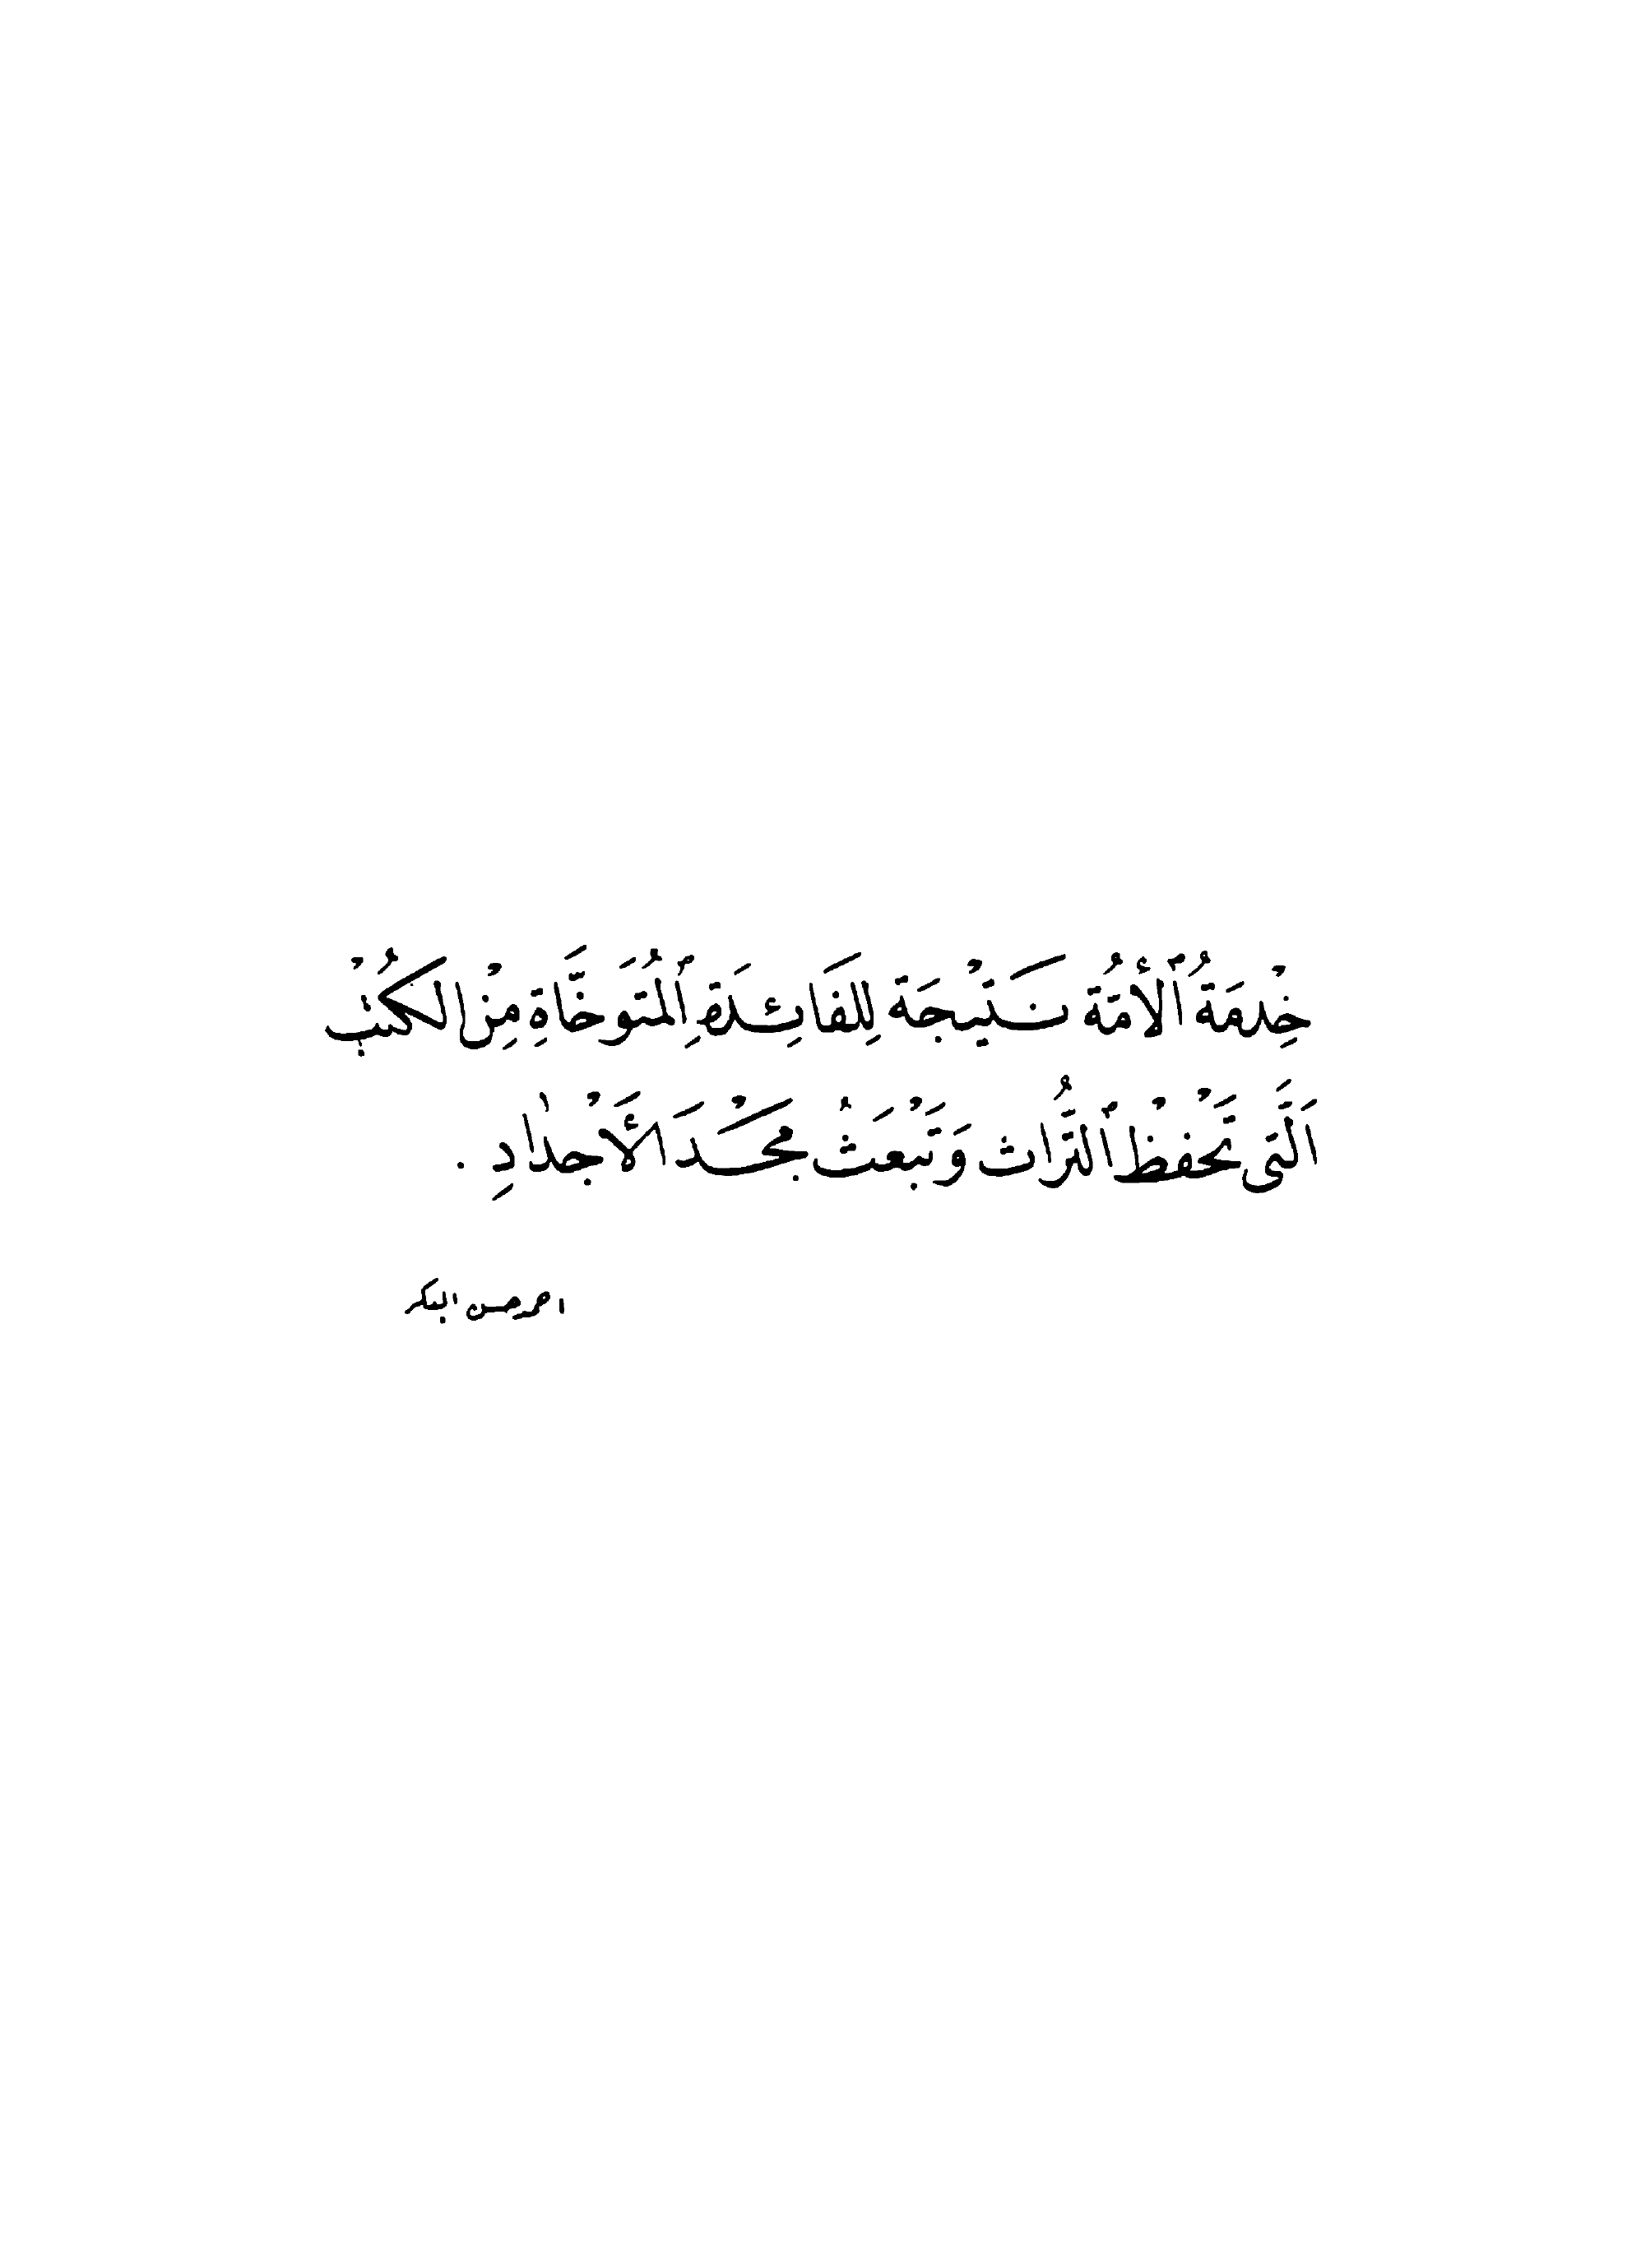 خِدْمَةُ ٱلأُمَّة نَتيْجَة لِلفَائِدَةِ ٱلمُتَوَخَّاةِ مِنْ الكُتُبْ
اَلَّتى تَحْفظْ ٱلتُّراث وَتَبْعَثْ مَجْدَ الأَجْدادِ .
احمد حسن البكر